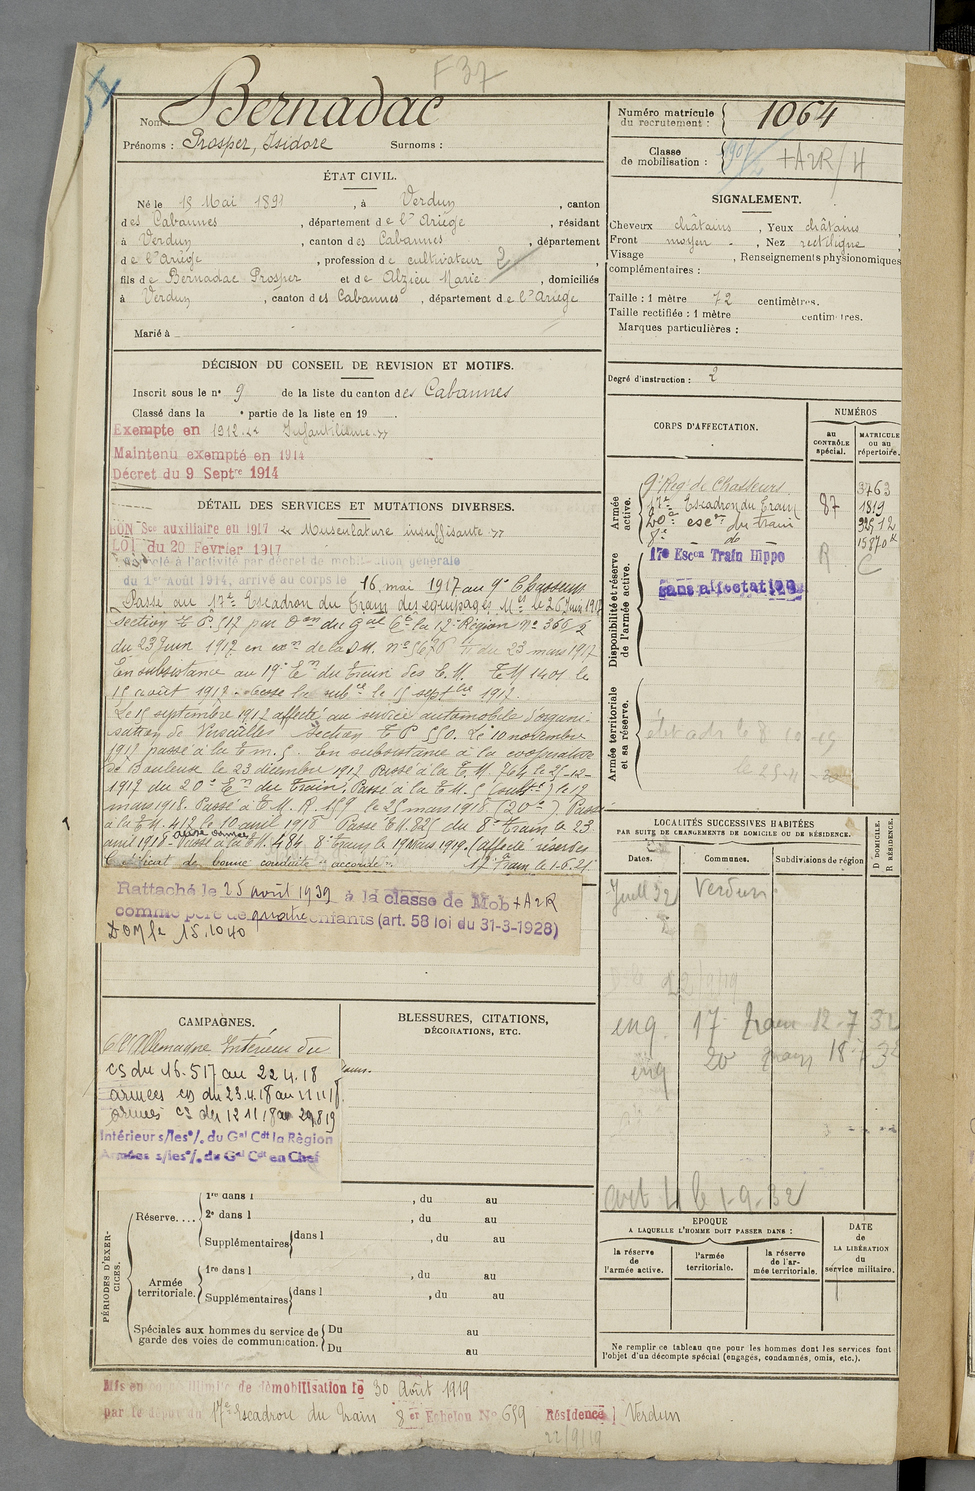 F 37
Nom : Bernadac
Prénoms : Prosper, Isidore Surnoms :
Numéro matricule du recrutement : 1064
Classe de mobilisation : +A2R/4
ÉTAT CIVIL.
Né le 15 Mai 189 , à Verdun , canton
des Cabannes , département de l'Ariège , résidant
à Verdun , canton des Cabannes , département
de l'Ariège , profession de cultivateur 2
fils de Bernadac Prosper et de Alzieu Marie , domiciliés
à Verdun , canton des Cabannes , département de l'Ariège
Marié à
SIGNALEMENT.
Cheveux châtains , Yeux châtains ,
Front moyen , Nez rectiligne ,
Visage , Renseignements physionomiques
complémentaires :
Taille : 1 mètre 72 centimètres.
Taille rectifiée : 1 mètre centimètres.
Marques particulières :
Degré d'instruction : 2
DÉCISION DU CONSEIL DE REVISION ET MOTIFS.
Inscrit sous le n° 9 de la liste du canton des Cabannes
Classé dans la partie de la liste en 19 .
Exempté en 1912 << Infantilisme >>
Maintenu exempté en 1914
Décret du 9 Septre 1914
DÉTAIL DES SERVICES ET MUTATIONS DIVERSES.
BON Sce auxiliaire en 1917 << Musculature insuffisante >>
LOI du 20 Février 1917
Rappelé à l'activité par décret de mobilisation générale
du 1er Août 1914, arrivé au corps le 16 mai 1917 au 9e Chasseurs
Passé au 17e Escadron du Train des équipages Mres le 26 Juin 1917
section T.P. 512 par Don du Gal Ct la 17e Région n° 366/2
du 23 Juin 1917 en de la D.M. n° 5676 du 23 mars 1917
En subsistance au 19e Em du Train des E.M. T.M 1401 le
15 août 1917. Cesse la subce le 15 septbre 1917.
Le 15 septembre 1917 affecté au service automobile d'organi-
sation de Versailles Section T.P 550. Le 10 novembre
1917 passé à la T.m.5. En subsistance à la coopérative
de Bouleuse le 23 décembre 1917 Passé à la T.M. 764 le 25-12-
1917 du 20e Em du Train. Passé à la T.M.5 le 17
mars 1918. Passé à T.M.R. 159 le 25 mars 1918 (20e) Passé
à la T.M. 412 le 10 avril 1918 Passé T.M. 825 du 8e Train le 23
avril 1918. Passé à la T.M. 484 8e Train le 19 Mars 1919. (affecté réserves
Certificat de bonne conduite "accordé" 17e Train le 1-6-21.
Rattaché le 25 août 1939 à la classe de Mob +A2R
comme père de quatre enfants (art. 58 loi du 31-3-1928)
DOM le 15.10 40
CORPS D'AFFECTATION.
NUMÉROS
au CONTRÔLE spécial.
MATRICULE ou au répertoire.
Armée active.
9e Rég. de Chasseurs. 3763
17e Escadron du Train 87 1819
20e escon du train
8e do
Disponibilité et réserve de l'armée active.
17e Escon Train Hippo R C
Sans affectation
Armée territoriale et sa réserve.
LOCALITÉS SUCCESSIVES HABITÉES
PAR SUITE DE CHANGEMENTS DE DOMICILE OU DE RÉSIDENCE.
Dates. Communes. Subdivisions de région D DOMICILE. R RÉSIDENCE.
Juill 32 Verdun
22/9/19
eng. 17 Train 12-7 32
eng 20 Train 18-7 32
art 4 le 1-9-32
CAMPAGNES.
C l'Allemagne Intérieur du
CS du 16.517 au 22 4.18
armées CS du 23.4.18 au 11 11 18
armées CS du 12 11 18 au 29 8 19
Intérieur s/les o/. du Gal Cdt la Région
Armées s/les o/. du Gal Cdt en Chef
BLESSURES, CITATIONS,
DÉCORATIONS, ETC.
PÉRIODES D'EXERCICES.
Réserve....
1re dans l , du au
2e dans l , du au
Supplémentaires dans l , du au
Armée territoriale.
1re dans l , du au
Supplémentaires dans l , du au
Spéciales aux hommes du service de garde des voies de communication.
Du au
Du au
EPOQUE
A LAQUELLE L'HOMME DOIT PASSER DANS :
la réserve de l'armée active.
l'armée territoriale.
la réserve de l'armée territoriale.
DATE de LA LIBÉRATION du service militaire.
Ne remplir ce tableau que pour les hommes dont les services font
l'objet d'un décompte spécial (engagés, condamnés, omis, etc.).
Mis en congé illimité de démobilisation le 30 Août 1919
par le dépôt du 17e Escadron du Train 8e Echelon No 659 Résidence Verdun
22/9/19